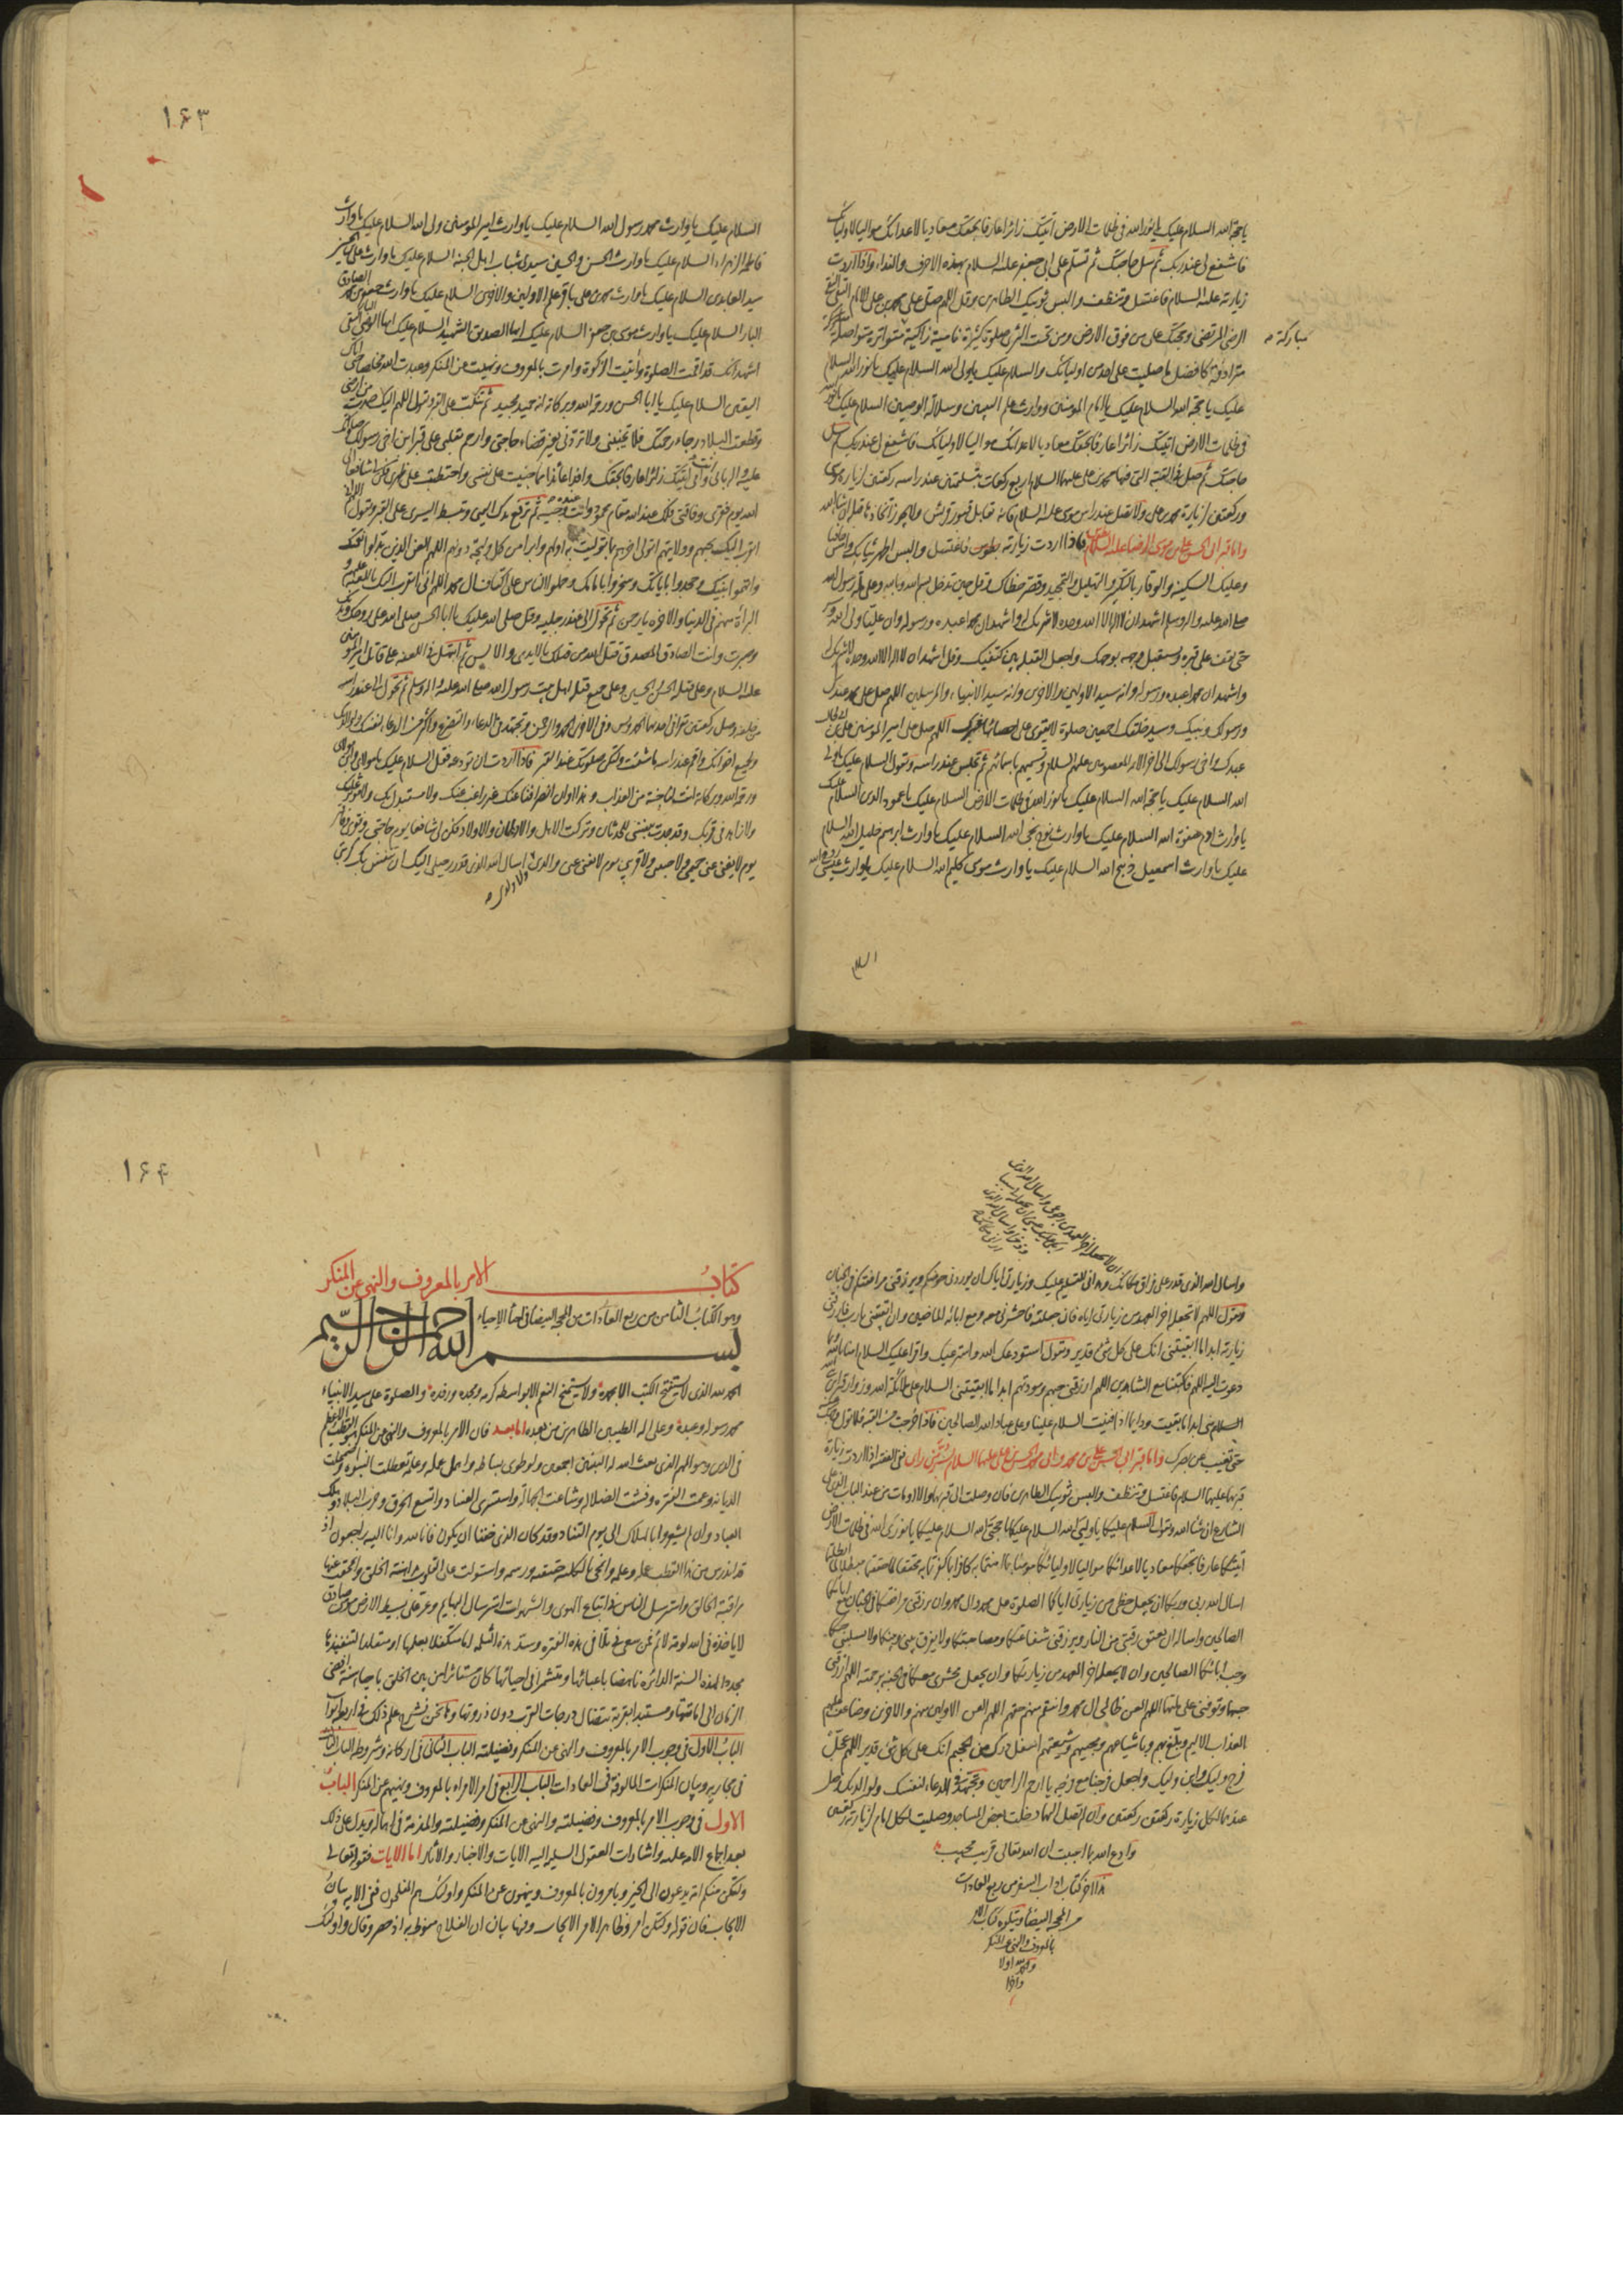 يا حجة الله السلام عليك يا نور الله في ظلمات الارض اتيتك زائرا عارفا بحقك معاديا لاعدائك مواليا لاوليائك
فاشفع لي عند ربك ثم سل حاجتك ثم تسلم على ابي جعفر عليه السلام بهذه الاحرف والنداء واذا اردت
زيارته عليه السلام فاغتسل وتنظف والبس ثوبيك الطاهرين وقل اللهم صل على محمد بن علي الامام التقي النقي
الرضي المرتضى وحجتك على من فوق الارض ومن تحت الثرى صلوة كثيرة نامية زاكية مباركة متواترة متواصلة
مترادفة كافضل ما صليت على احد من اوليائك والسلام عليك يا ولي الله السلام عليك يا نور الله السلام
عليك يا حجة الله السلام عليك يا امام المؤمنين ووارث علم النبيين وسلالة الوصيين السلام عليك يا نور الله
في ظلمات الارض اتيتك زائرا عارفا بحقك معاديا لاعدائك مواليا لاوليائك فاشفع لي عند ربك ثم سل
حاجتك ثم صل في القبة التي فيها محمد بن علي عليهما السلام اربع ركعات بتسليمتين عند راسه ركعتين لزيارة موسى
وركعتين لزيارة محمد بن علي ولا تصل عند راس موسى عليه السلام فانه تقابل قبور قريش ولا يجوز اتخاذها قبلة ان شاء الله
واما قبر ابي الحسن علي بن موسى الرضا عليه السلام فاذا اردت زيارته بطوس فاغتسل والبس اطهر ثيابك وامش حافيا
وعليك السكينة والوقار بالتكبير والتهليل والتمجيد وقصر خطاك وقل حين تدخل بسم الله وبالله وعلى ملة رسول الله
صلى الله عليه واله وسلم اشهد ان لا اله الا الله وحده لا شريك له واشهد ان محمدا عبده ورسوله وان عليا ولي الله وسر
حتى تقف على قبره وتستقبل وجهه بوجهك واجعل القبلة بين كتفيك وقل اشهد ان لا اله الا الله وحده لا شريك له
واشهد ان محمدا عبده ورسوله وانه سيد الاولين والاخرين وانه سيد الانبياء والمرسلين اللهم صل على محمد عبدك
ورسولك ونبيك وسيد خلقك اجمعين صلوة لا يقوى على احصائها غيرك اللهم صل على امير المؤمنين علي بن ابي طالب
عبدك واخي رسولك الى اخر الائمة المعصومين عليهم السلام وتسميهم باسمائهم ثم تجلس عند راسه وتقول السلام عليك يا ولي
الله السلام عليك يا حجة الله السلام عليك يا نور الله في ظلمات الارض السلام عليك يا عمود الدين السلام عليك
يا وارث ادم صفوة الله السلام عليك يا وارث نوح نجي الله السلام عليك يا وارث ابرهيم خليل الله السلام
عليك يا وارث اسمعيل ذبيح الله السلام عليك يا وارث موسى كليم الله السلام عليك يا وارث عيسى روح الله
السلام
١۶٣
السلام عليك يا وارث محمد رسول الله السلام عليك يا وارث امير المؤمنين ولي الله السلام عليك يا وارث
فاطمة الزهراء السلام عليك يا وارث الحسن والحسين سيدي شباب اهل الجنة السلام عليك يا وارث علي بن الحسين
سيد العابدين السلام عليك يا وارث محمد بن علي باقر علم الاولين والاخرين السلام عليك يا وارث جعفر بن محمد الصادق
البار السلام عليك يا وارث موسى بن جعفر السلام عليك ايها الصديق الشهيد السلام عليك ايها الوصي البار التقي
اشهد انك قد اقمت الصلوة واتيت الزكوة وامرت بالمعروف ونهيت عن المنكر وعبدت الله مخلصا حتى اتاك
اليقين السلام عليك يا ابا الحسن ورحمة الله وبركاته انه حميد مجيد ثم تنكب على القبر وتقول اللهم اليك صمدت من ارضي
وقطعت البلاد رجاء رحمتك فلا تخيبني ولا تردني بغير قضاء حاجتي وارحم تقلبي على قبر ابن اخي رسولك صلواتك
عليه واله بابي انت وامي اتيتك زائرا وافدا عائذا مما جنيت على نفسي واحتطبت على ظهري فكن لي شافعا الى
الله يوم فقري وفاقتي فلك عند الله مقام محمود وانت عنده وجيه ثم ترفع يدك اليمنى وتبسط اليسرى على القبر وتقول اللهم اني
اتقرب اليك بحبهم وولايتهم اتولى اخرهم بما توليت به اولهم وابرأ من كل وليجة دونهم اللهم العن الذين بدلوا نعمتك
واتهموا نبيك وجحدوا باياتك وسخروا بامامك وحملوا الناس على اكتاف ال محمد اللهم اني اتقرب اليك باللعنة عليهم و
البراءة منهم في الدنيا والاخرة يا رحمن ثم تحول الى عند رجليه وقل صلى الله عليك يا ابا الحسن صلى الله على روحك وبدنك
وصبرت وانت الصادق المصدق قتل الله من قتلك بالايدي والالسن ثم ابتهل في اللعنة على قاتل امير المؤمنين
عليه السلام وعلى قتلة الحسن والحسين وعلى جميع قتلة اهل بيت رسول الله صلى الله عليه واله وسلم ثم تحول الى عند راسه
من خلفه وصل ركعتين تقرأ في احديهما الحمد ويس وفي الاخرى الحمد والرحمن وتجتهد في الدعاء والتضرع واكثر من الدعاء لنفسك ولوالديك
ولجميع اخوانك واقم عند راسه ما شئت ولتكن صلوتك عند القبر فاذا اردت ان تودعه فقل السلام عليك يا مولاي وابن مولاي
ورحمة الله وبركاته انت لنا جنة من العذاب وهذا اوان انصرافنا عنك غير راغب عنك ولا مستبدل بك ولا مؤثر عليك
ولا زاهد في قربك وقد جدت بنفسي للحدثان وتركت الاهل والاوطان والاولاد فكن لي شافعا يوم حاجتي وفقري وفاقتي
يوم لا يغني عني حميمي ولا حبيبي ولا قريبي يوم لا يغني عني والدي ولا ولدي اسال الله الذي قدر رحيلي اليك ان ينفس بك كربتي
واسال الله الذي قدر علي فراق مكانك
وتقول اللهم لا تجعله اخر العهد من زيارتي اياه فان جعلته فاحشرني معه ومع ابائه الماضين وان ابقيتني يا رب فارزقني
زيارته ابدا ما ابقيتني انك على كل شيء قدير وتقول استودعك الله واسترعيك واقرأ عليك السلام امنا بالله وبما
دعوت اليه اللهم فاكتبنا مع الشاهدين اللهم ارزقني حبهم ومودتهم ابدا ما ابقيتني السلام على ملائكة الله وزوار قبر ابن
السلام مني ابدا ما بقيت ودائما اذا فنيت السلام علينا وعلى عباد الله الصالحين فاذا خرجت من القبة فلا تول وجهك عنه
حتى تغيب عن بصرك واما قبر ابي الحسن علي بن محمد وابي محمد الحسن بن علي عليهما السلام بسر من راى ففي الفقيه اذا اردت زيارة
قبريهما عليهما السلام فاغتسل وتنظف والبس ثوبيك الطاهرين فان وصلت الى قبريهما والا اومات من عند الباب الذي على
الشارع ان شاء الله وتقول السلام عليكما يا وليي الله السلام عليكما يا حجتي الله السلام عليكما يا نوري الله في ظلمات الارض
اتيتكما عارفا بحقكما معاديا لاعدائكما مواليا لاوليائكما مؤمنا بما امنتما به كافرا بما كفرتما به محققا لما حققتما مبطلا لما ابطلتما
اسال الله ربي وربكما ان يجعل حظي من زيارتي اياكما الصلوة على محمد وال محمد وان يرزقني مرافقتكما في الجنان مع ابائكما
الصالحين واساله ان يعتق رقبتي من النار ويرزقني شفاعتكما ومصاحبتكما ولا يفرق بيني وبينكما ولا يسلبني حبكما
وحب ابائكما الصالحين وان لا يجعله اخر العهد من زيارتكما وان يجعل محشري معكما في الجنة برحمته اللهم ارزقني
حبهما وتوفني على ملتهما اللهم العن ظالمي ال محمد وانتقم منهم اللهم العن الاولين منهم والاخرين وضاعف عليهم
العذاب الاليم وبلغ بهم وباشياعهم ومحبيهم وشيعتهم اسفل درك من الجحيم انك على كل شيء قدير اللهم عجل
فرج وليك وابن وليك واجعل فرجنا مع فرجه يا ارحم الراحمين وتجتهد في الدعاء لنفسك ولوالديك وصل
عندهما لكل زيارة ركعتين ركعتين وان لم تصل اليهما دخلت بعض المساجد وصليت لكل امام لزيارته ركعتين
وادع الله بما احببت ان الله تعالى قريب مجيب
هذا اخر كتاب اداب السفر من ربع العادات
من المحجة البيضاء ويتلوه كتاب الامر
بالمعروف والنهي عن المنكر
والحمد لله اولا
واخرا
١۶۴
كتاب الامر بالمعروف والنهي عن المنكر
وهو الكتاب الثامن من ربع العادات من المحجة البيضاء في احياء الاحياء
بسم الله الرحمن الرحيم
الحمد لله الذي لا يستفتح الكتب الا بحمده ولا يستمنح النعم الا بواسطة كرمه ومجده ورفده والصلوة على سيد الانبياء
محمد رسوله وعبده وعلى اله الطيبين الطاهرين من بعده اما بعد فان الامر بالمعروف والنهي عن المنكر هو القطب الاعظم
في الدين وهو المهم الذي بعث الله له النبيين اجمعين ولو طوى بساطه واهمل علمه وعمله لتعطلت النبوة واضمحلت
الديانة وعمت الفترة وفشت الضلالة وشاعت الجهالة واستشرى الفساد واتسع الخرق وخرب البلاد وهلك
العباد وان لم يشعروا بالهلاك الى يوم التناد وقد كان الذي خفنا ان يكون فانا لله وانا اليه راجعون اذ
قد اندرس من هذا القطب عمله وعلمه وانمحى بالكلية حقيقته ورسمه واستولت على القلوب مداهنة الخلق وانمحت عنها
مراقبة الخالق واسترسل الناس في اتباع الهوى والشهوات استرسال البهايم وعز على بسيط الارض مؤمن صادق
لا ياخذه في الله لومة لائم فمن سعى في تلافي هذه الفترة وسد هذه الثلمة اما متكفلا بعملها او متقلدا لتنفيذها
مجددا لهذه السنة الدائرة ناهضا باعبائها ومتشمرا في احيائها كان مستاثرا من بين الخلق باحياء سنة افضى
الزمان الى اماتتها ومستبدا بقربة يتضائل درجات القرب دون ذروتها وها نحن نشرح علم ذلك في اربعة ابواب
الباب الاول في وجوب الامر بالمعروف والنهي عن المنكر وفضيلته الباب الثاني في اركانه وشروطه الباب الثالث
في مجاريه وبيان المنكرات المالوفة في العادات الباب الرابع في امر الامراء بالمعروف ونهيهم عن المنكر الباب
الاول في وجوب الامر بالمعروف وفضيلته والنهي عن المنكر وفضيلته والمذمة في اهماله ويدل على ذلك
بعد اجماع الامة عليه واشارات العقول السليمة اليه الايات والاخبار والاثار اما الايات فقوله تعالى
ولتكن منكم امة يدعون الى الخير ويامرون بالمعروف وينهون عن المنكر واولئك هم المفلحون ففي الاية بيان
الايجاب فان قوله ولتكن امر وظاهر الامر الايجاب وفيها بيان ان الفلاح منوط به اذ حصر وقال واولئك